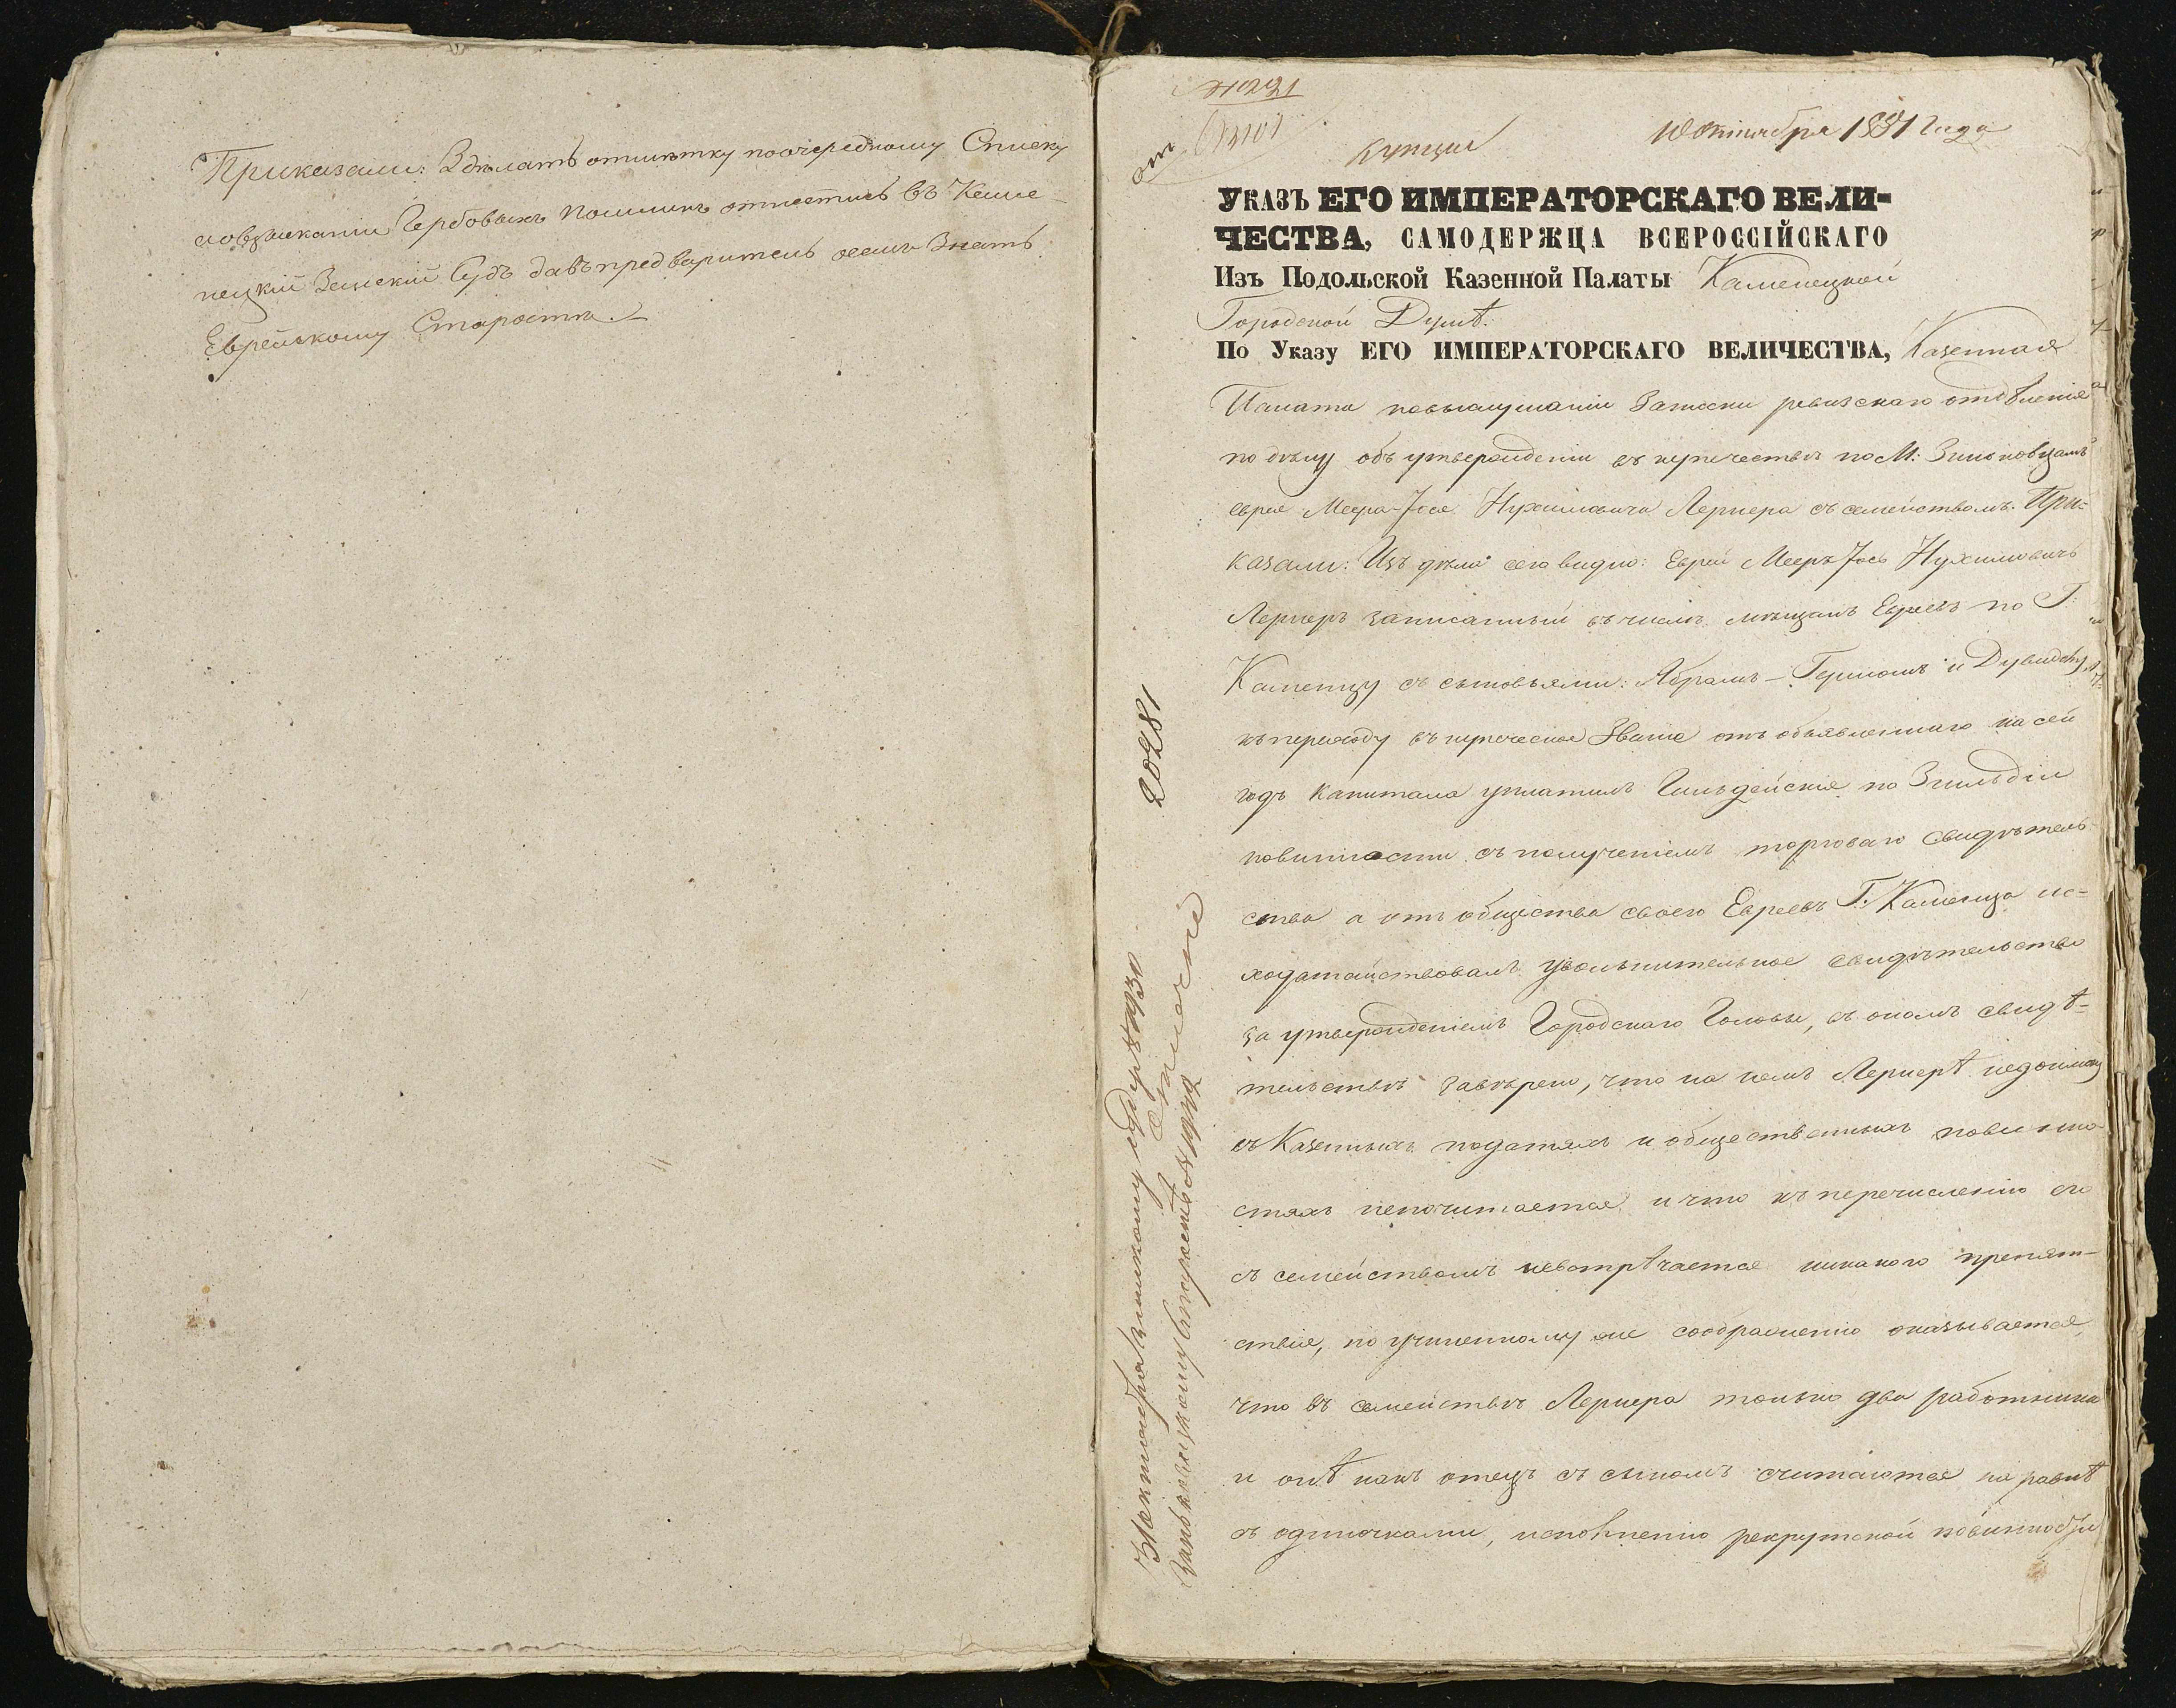 Приказали: Здѣлать отмѣтку поочередному Списку
а овзысканіи Гербовыхъ Пошлинъ отнестись въ Каме-
нецкій Земскій Судъ давъ предваритель осемъ Знать
Еврейскому Старостѣ.
купцы
10 Октября 1831 Года
Указъ ЕГО ИМПЕРАТОРСКАГО ВЕЛИ-
ЧЕСТВА, САМОДЕРЖЦА ВСЕРОССІЙСКАГО
Изъ Подольской Казенной Палаты Каменецкой
Городской Думѣ.
По Указу ЕГО ИМПЕРАТОРСКАГО ВЕЛИЧЕСТВА, Казенная
Палата повыслушаніи Записки ревизскаго отдѣленія
по дѣлу объ утвержденіи въ купечествѣ по М: Зиньковцамъ
еврея Меера-Іося Нухимовича Лернера съ семействомъ. При-
казали: Изъ дѣла сего видно: Еврей Мееръ Іось Нухимовичъ
Лернеръ записанный въ числѣ мѣщанъ Евреевъ по Г:
Каменцу съ сыновьями: Абрамъ-Гершомъ и Дувидомъ,
къ переходу въ купеческое Званіе отъ объявленнаго на сей
годъ Капитала уплатилъ Гильдейскія по 3 гильдіи
повинности съ полученіемъ торговаго свидѣтель-
ства а отъ общества своего Евреевъ Г. Каменца ис-
ходатайствовалъ увольнительное свидѣтельство
за утвержденіемъ Городскаго Головы, въ ономъ свидѣ-
тельствѣ завѣрено, что на немъ Лернерѣ недоимки
въ Казенныхъ податяхъ и общественныхъ повинно-
стяхъ непочитается и что къ перечисленію его
съ семействомъ невстрѣчается никакого препят-
ствія, по учиненному же соображенію оказывается,
что въ семействѣ Лернера только два работника
и онѣ какъ отецъ съ сыномъ считаются на равнѣ
съ одиночками, исполненію рекрутской повинности
20281